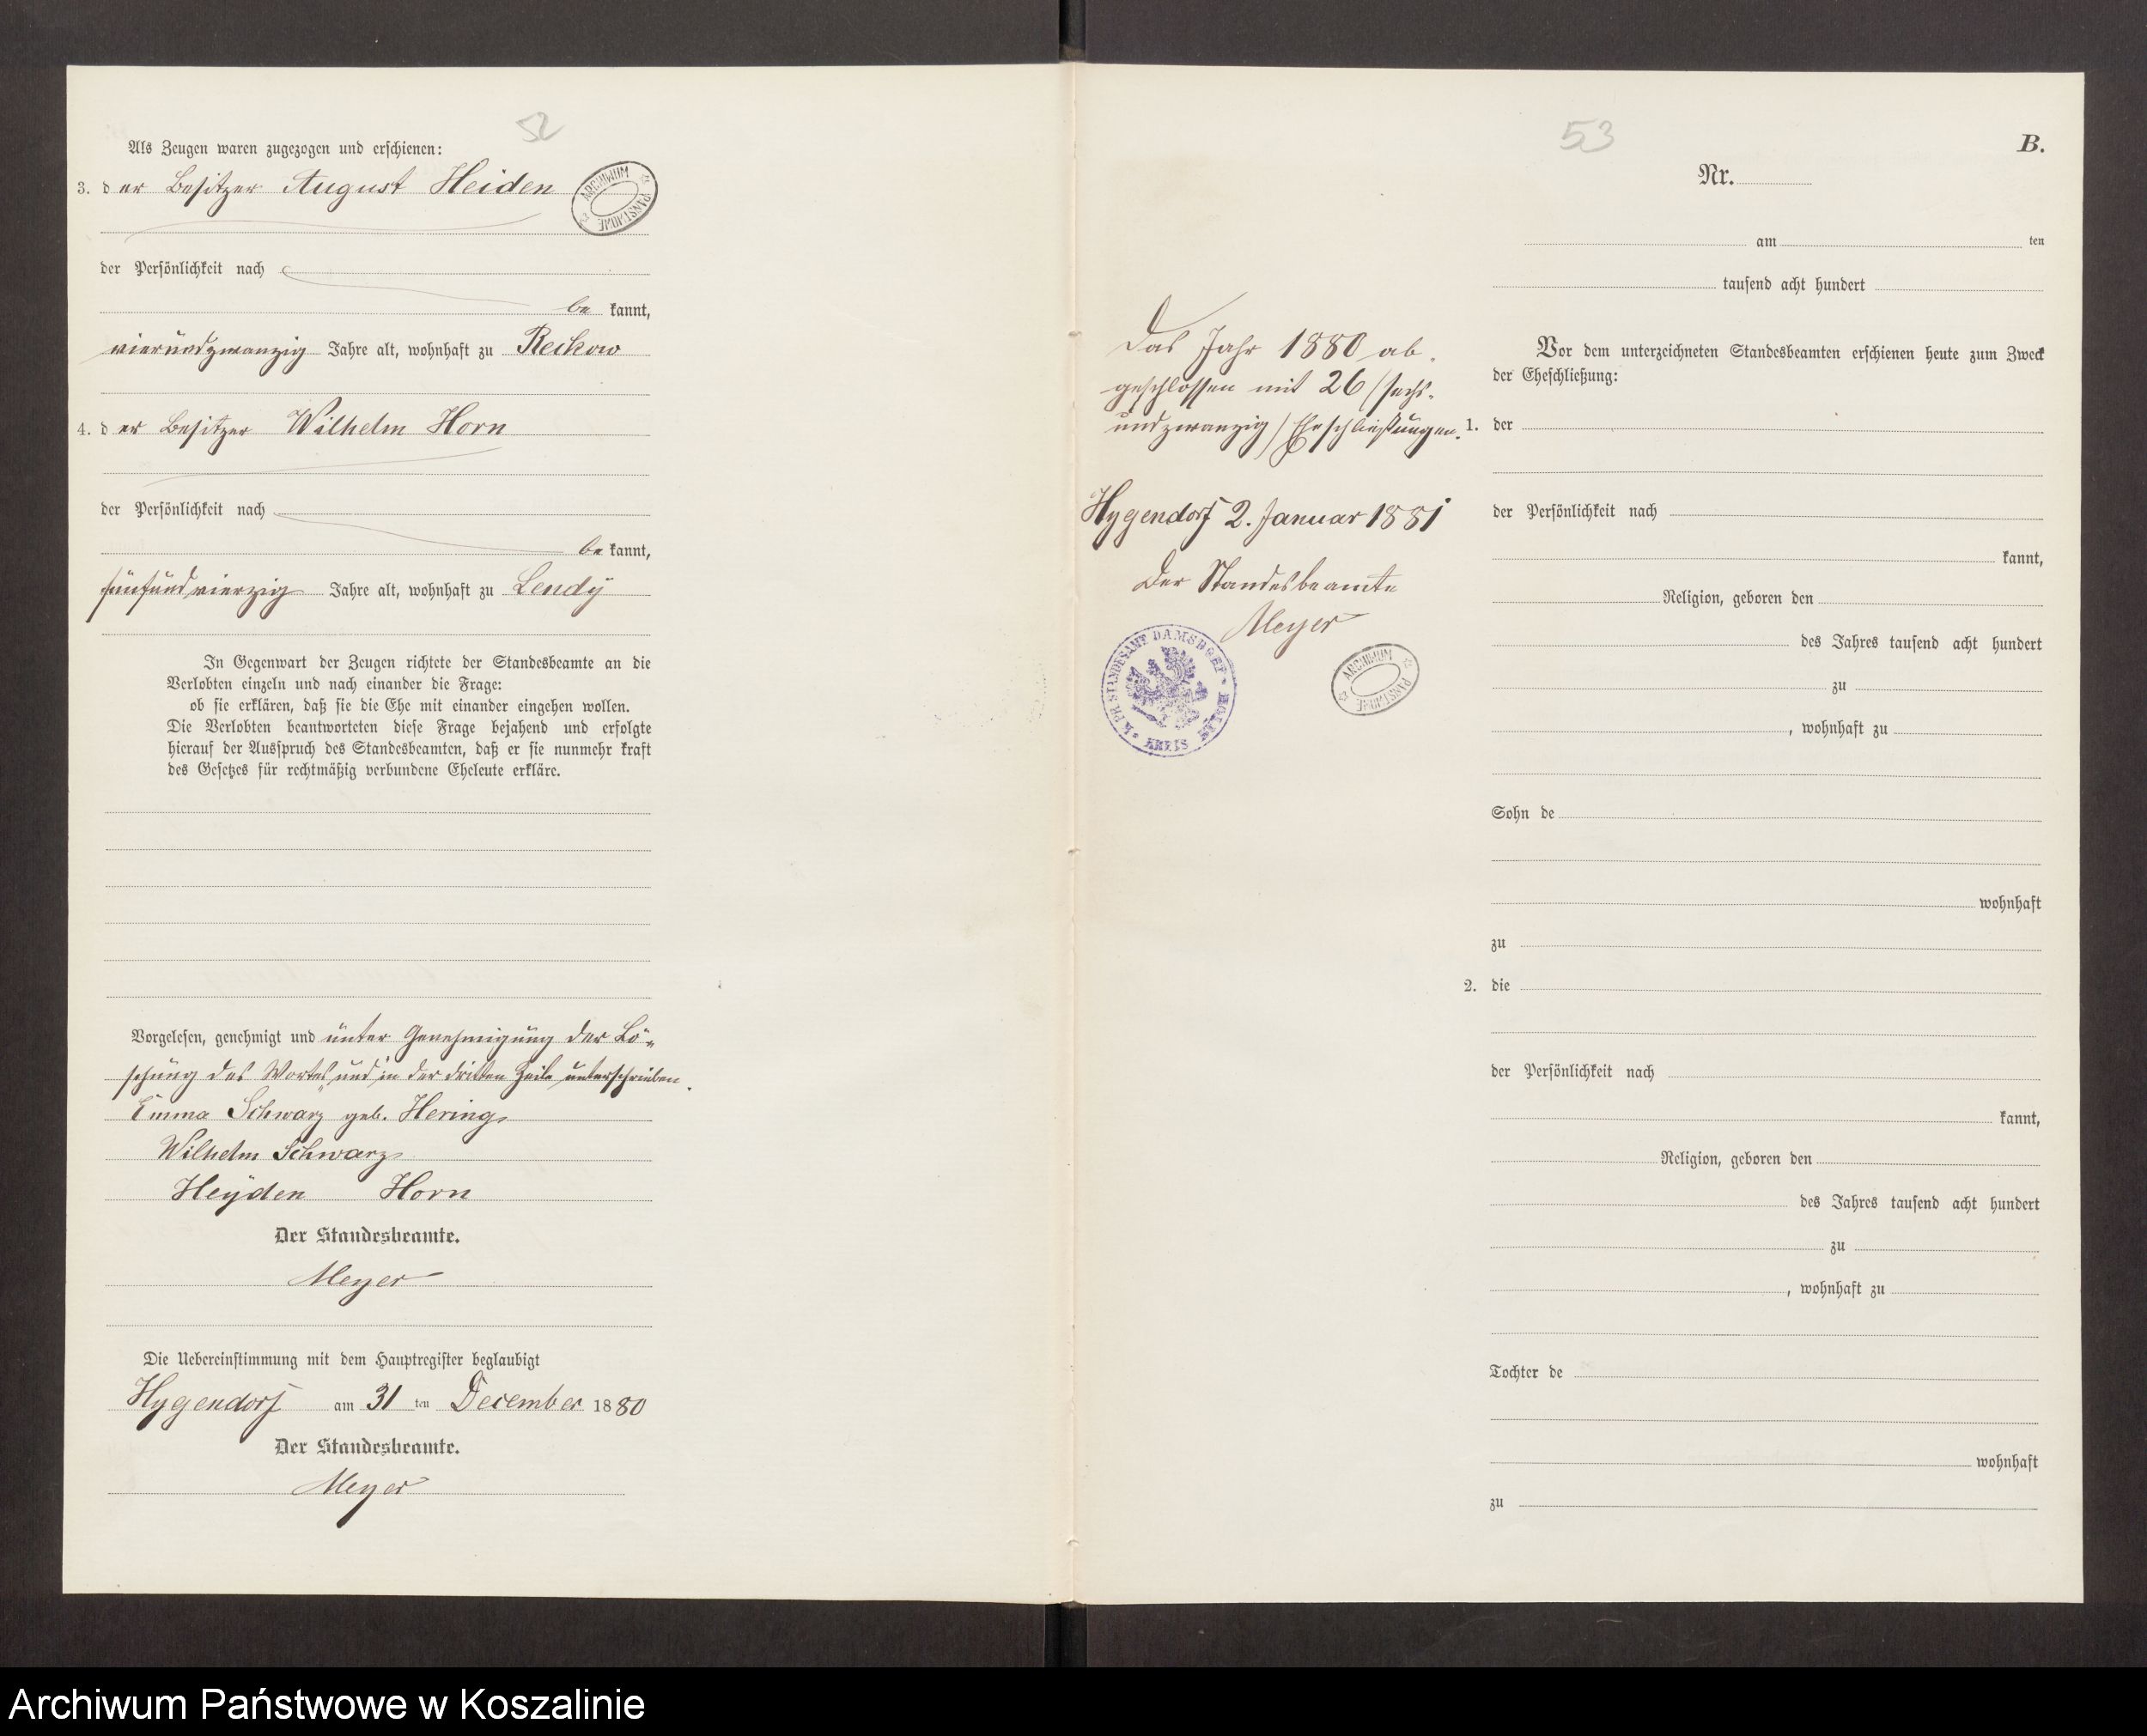 52
Als Zeugen waren zugezogen und erschienen:
3. der Besitzer August Heiden
ARCHIWUM PAŃSTWOWE
der Persönlichkeit nach
bekannt,
vierundzwanzig Jahre alt, wohnhaft zu Reckow
4. der Besitzer Wilhelm Horn
der Persönlichkeit nach
bekannt,
fünfundvierzig Jahre alt, wohnhaft zu Lendy
In Gegenwart der Zeugen richtete der Standesbeamte an die
Verlobten einzeln und nach einander die Frage:
ob sie erklären, daß sie die Ehe mit einander eingehen wollen.
Die Verlobten beantworteten diese Frage bejahend und erfolgte
hierauf der Ausspruch des Standesbeamten, daß er sie nunmehr kraft
des Gesetzes für rechtmäßig verbundene Eheleute erkläre.
Vorgelesen, genehmigt und unter Genehmigung der Lö-
schung des Wortes "und" in der dritten Zeile unterschrieben.
Emma Schwarz geb. Hering
Wilhelm Schwarz
Heyden Horn
Der Standesbeamte.
Meyer
Die Uebereinstimmung mit dem Hauptregister beglaubigt
Hygendorf am 31 ten December 1880
Der Standesbeamte.
Meyer
Das Jahr 1880 ab-
geschlossen mit 26 /sechs-
undzwanzig/ Eheschließungen.
Hygendorf 2. Januar 1881
Der Standesbeamte
Meyer
K. PR. STANDESAMT DAMSDORF KREIS
ARCHIWUM PAŃSTWOWE
53
B.
Nr.
am ten
tausend acht hundert
Vor dem unterzeichneten Standesbeamten erschienen heute zum Zweck
der Eheschließung:
1. der
der Persönlichkeit nach
kannt,
Religion, geboren den
des Jahres tausend acht hundert
zu
, wohnhaft zu
Sohn de
wohnhaft
zu
2. die
der Persönlichkeit nach
kannt,
Religion, geboren den
des Jahres tausend acht hundert
zu
, wohnhaft zu
Tochter de
wohnhaft
zu
Archiwum Państwowe w Koszalinie